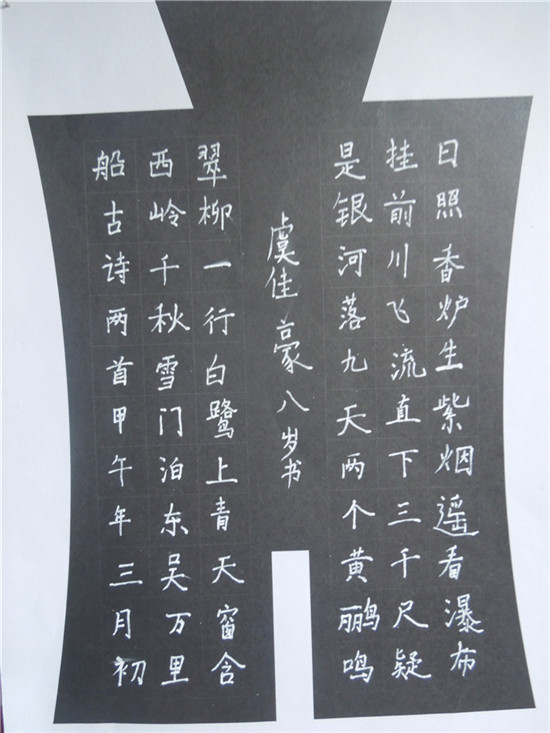 日照香炉生紫烟遥看瀑布
挂前川飞流直下三千尺疑
是银河落九天两个黄鹂鸣
虞佳豪八岁书
翠柳一行白鹭上青天窗含
西岭千秋雪门泊东吴万里
船古诗两首甲午年三月初